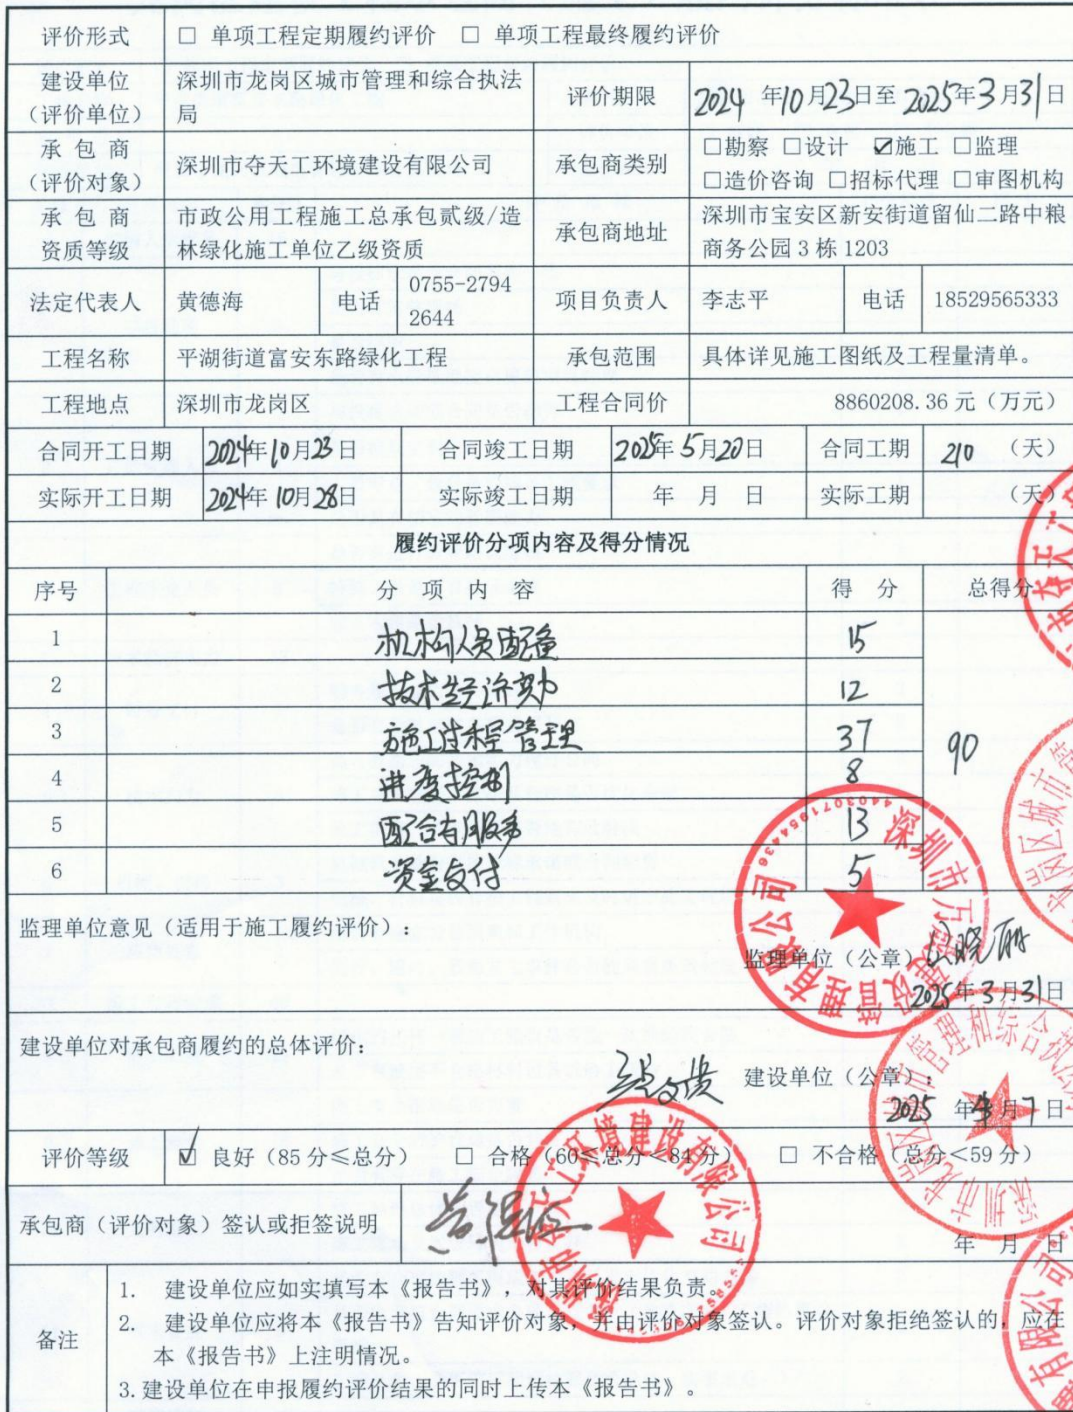 评价形式 □ 单项工程定期履约评价 □ 单项工程最终履约评价
建设单位（评价单位） 深圳市龙岗区城市管理和综合执法局 评价期限 2024 年10月23日至 2025年3月31日
承包商（评价对象） 深圳市夺天工环境建设有限公司 承包商类别 □勘察 □设计 ☑施工 □监理
□造价咨询 □招标代理 □审图机构
承包商资质等级 市政公用工程施工总承包贰级/造林绿化施工单位乙级资质 承包商地址 深圳市宝安区新安街道留仙二路中粮商务公园 3 栋 1203
法定代表人 黄德海 电话 0755-27942644 项目负责人 李志平 电话 18529565333
工程名称 平湖街道富安东路绿化工程 承包范围 具体详见施工图纸及工程量清单。
工程地点 深圳市龙岗区 工程合同价 8860208.36 元（万元）
合同开工日期 2024年10月23日 合同竣工日期 2025年5月20日 合同工期 210 （天）
实际开工日期 2024年10月28日 实际竣工日期 年 月 日 实际工期 （天）
履约评价分项内容及得分情况
序号 分 项 内 容 得 分 总得分
1 机构人员配备 15
2 技术经济实力 12
3 施工过程管理 37
90
4 进度控制 8
5 配合与服务 13
6 资金支付 5
监理单位意见（适用于施工履约评价）：
监理单位（公章）
2025年3月31日
建设单位对承包商履约的总体评价：
建设单位（公章）：
2025 年 月7日
评价等级 ☑ 良好（85 分≤总分） □ 合格（60≤总分<84 分） □ 不合格（总分<59 分）
承包商（评价对象）签认或拒签说明
年 月 日
备注
1. 建设单位应如实填写本《报告书》，对其评价结果负责。
2. 建设单位应将本《报告书》告知评价对象，并由评价对象签认。评价对象拒绝签认的，应在
本《报告书》上注明情况。
3.建设单位在申报履约评价结果的同时上传本《报告书》。
深圳市夺天工环境建设有限公司